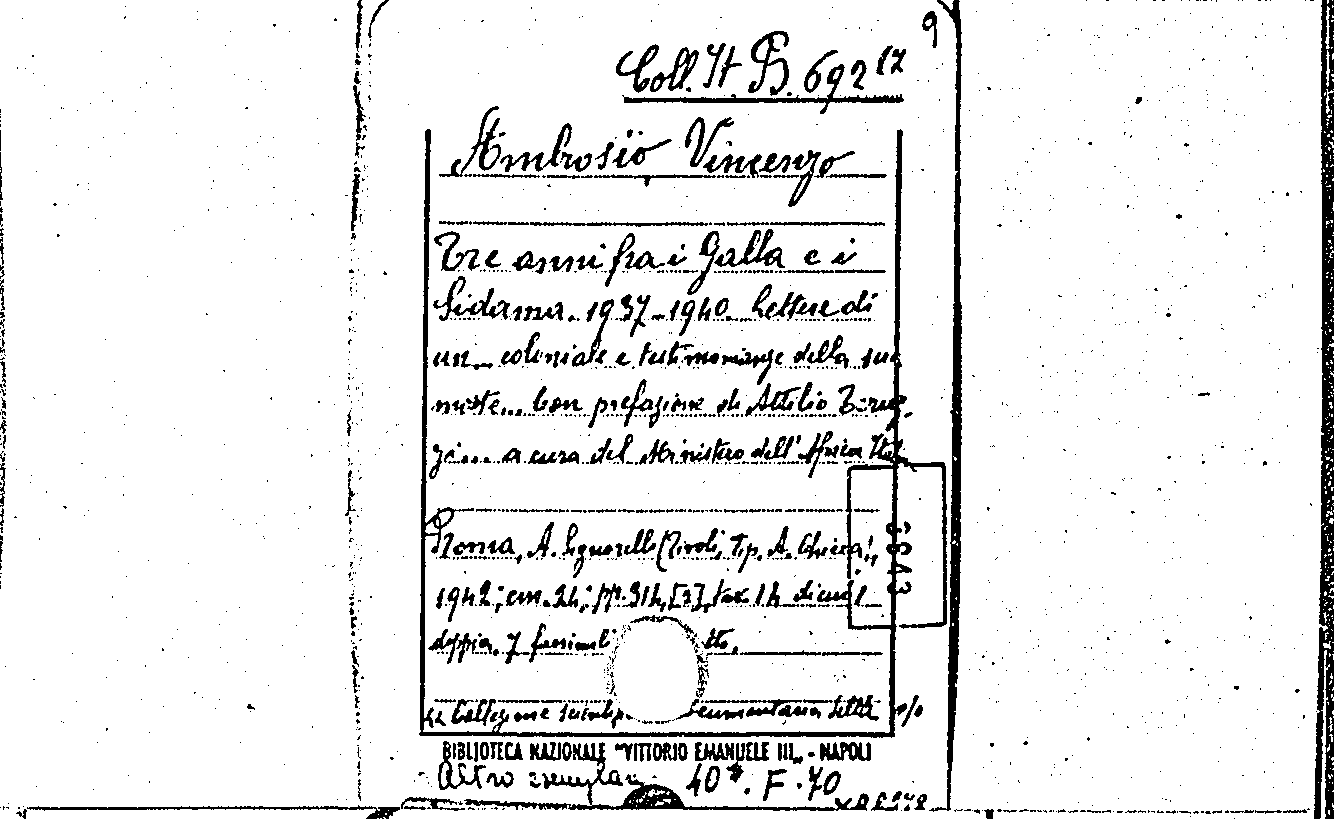 9
Coll. It. B. 692 17
Ambrosio Vincenzo
Tre anni fra i Galla e i
Sidama. 1937-1940. Lettere di
un... coloniale e testimonianze della sua
morte... Con prefazione di Attilio Teruz-
zi... a cura del Ministero dell'Africa Ital
Roma, A. Signorelli (Tivoli, Tip. A. Chicca),
1942; cm. 24; pp. 314, [3], tav. 14 di cui 1
doppia, 7 facsimili
38643
Collezione documentaria
BIBLIOTECA NAZIONALE "VITTORIO EMANUELE III„ - NAPOLI
Altro esemplare 40*. F. 70